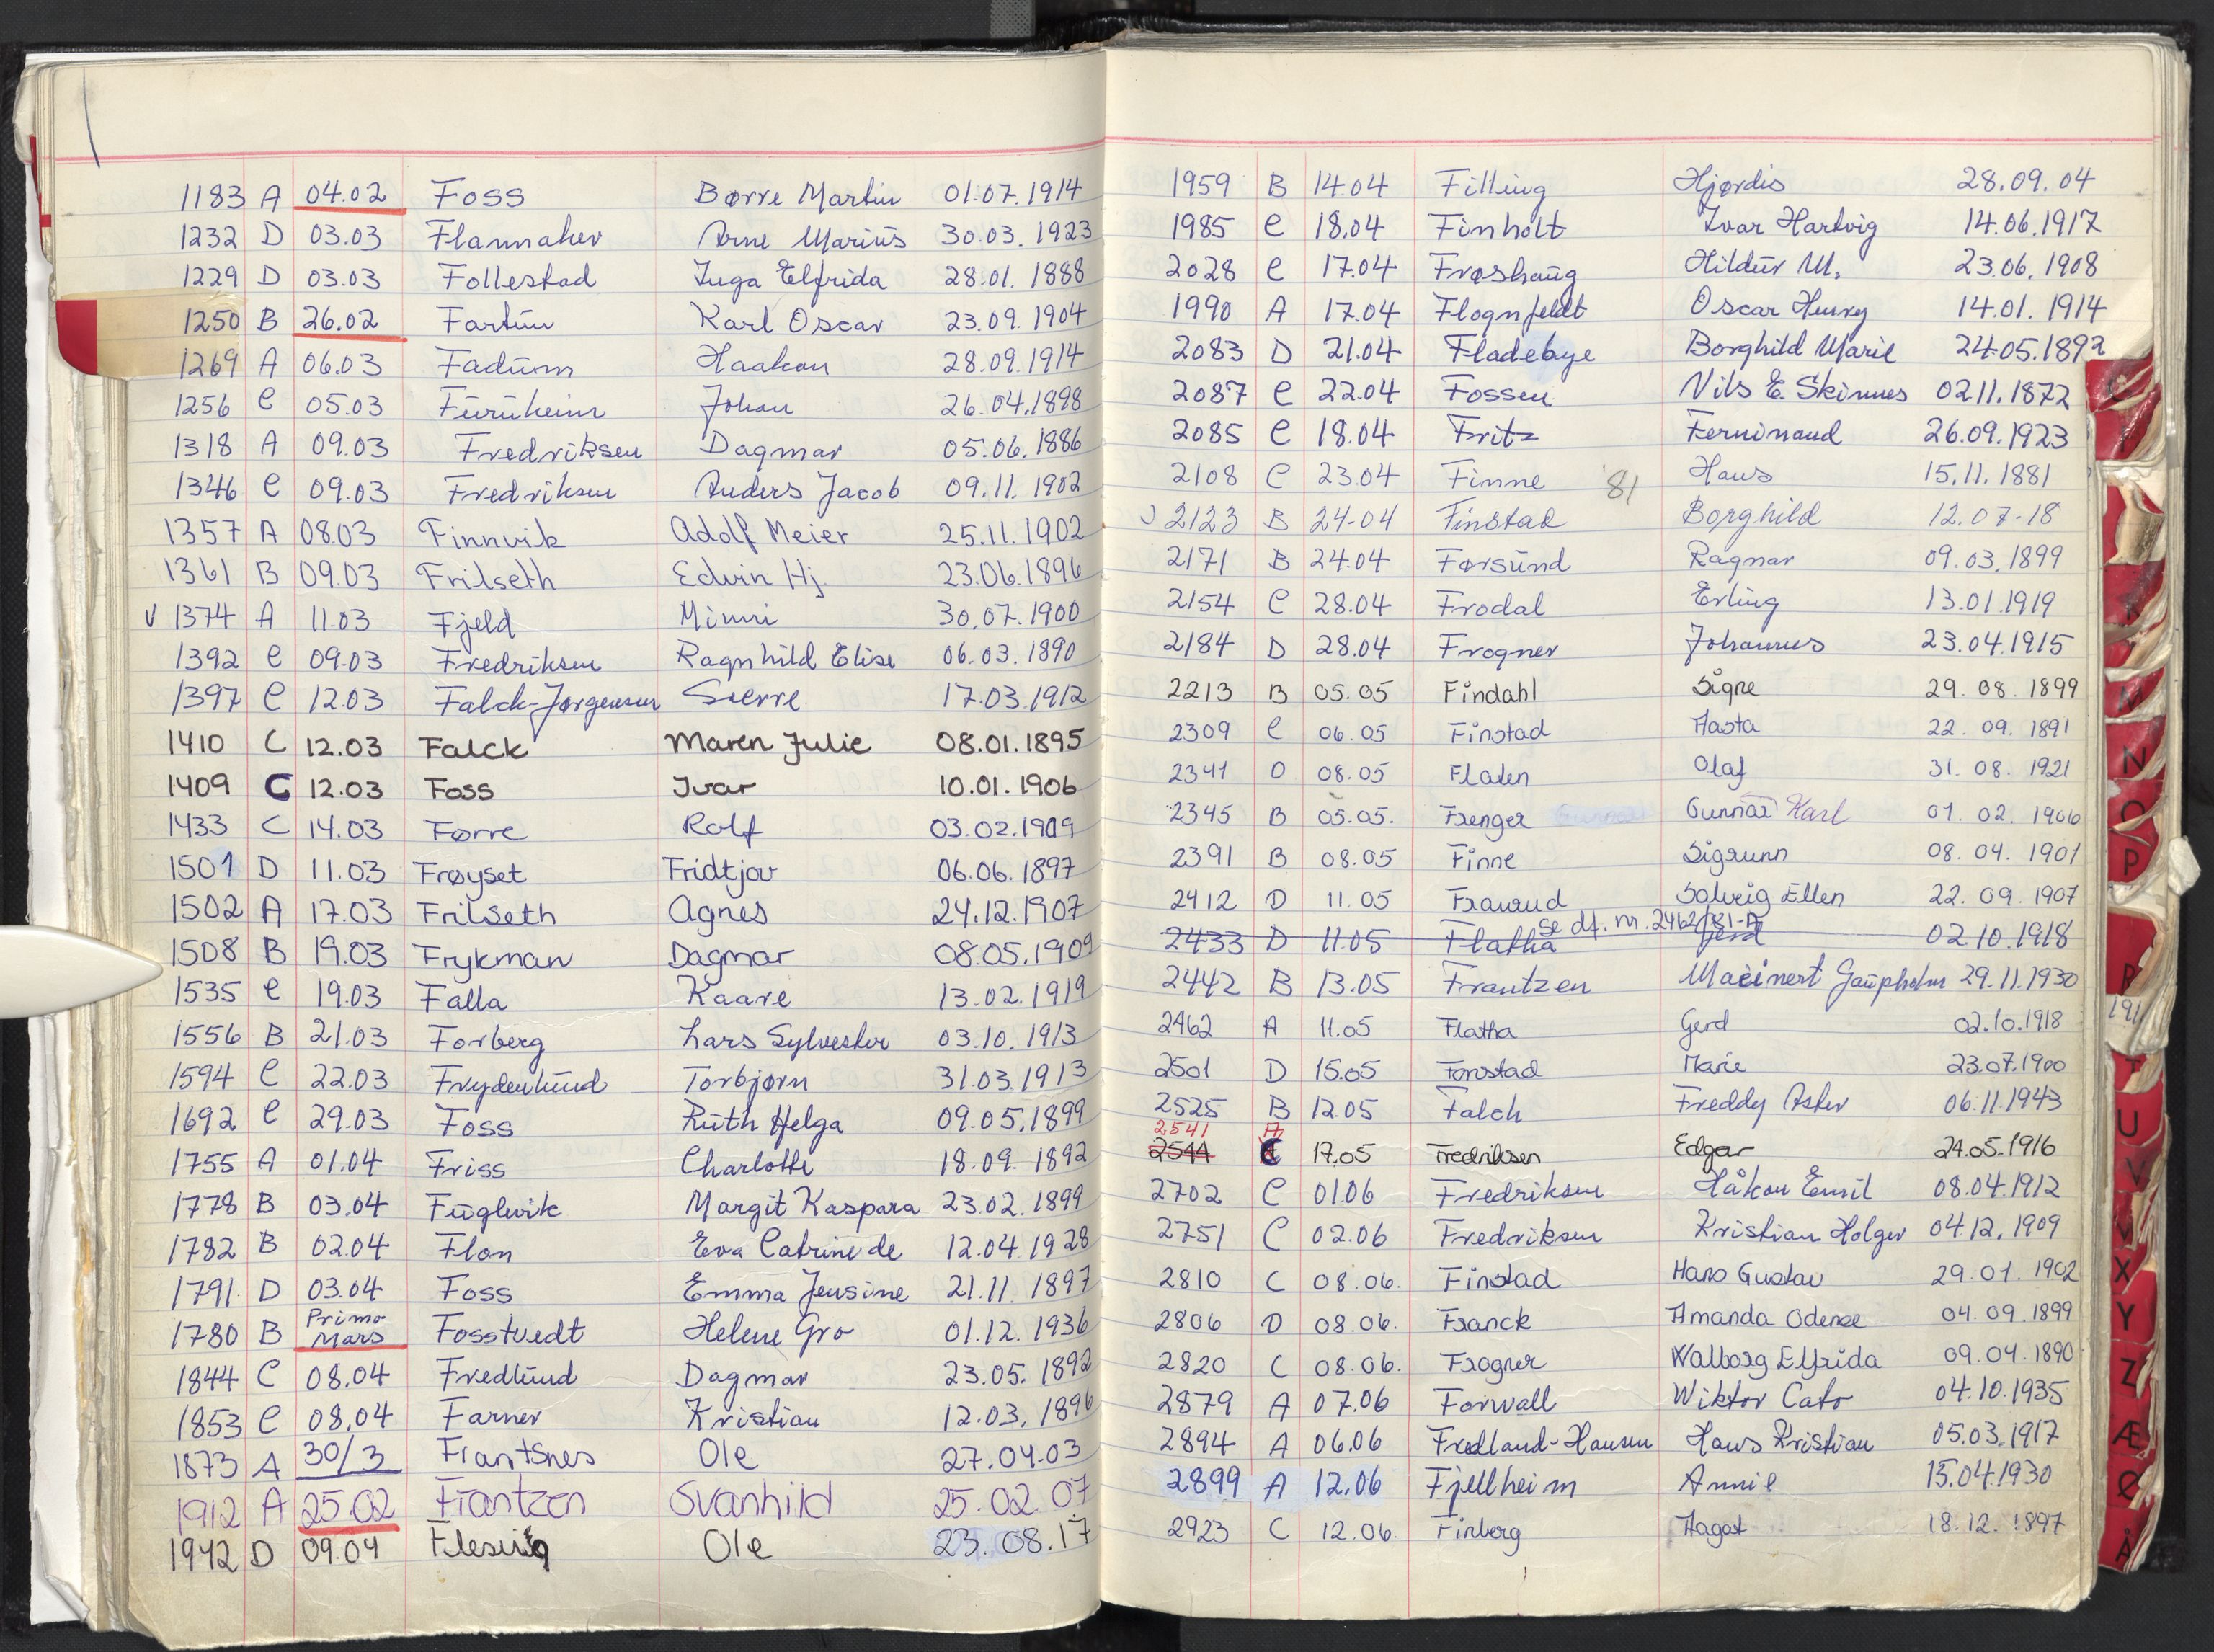 1183 A 04.02 Foss Børre Martin 01.07.1914
1232 D 03.03 Flannaker Arne Marius 30.03.1923
1229 D 03.03 Follestad Inga Elfrida 28.01.1888
1250 B 26.02 Fartun Karl Oscar 23.09.1904
1269 A 06.03 Fadum Haakon 28.09.1914
1256 C 05.03 Furuheim Johan 26.04.1898
1318 A 09.03 Fredriksen Dagmar 05.06.1886
1346 C 09.03 Fredriksen Anders Jacob 09.11.1902
1357 A 08.03 Finnvik Adolf Meier 25.11.1902
1361 B 09.03 Frilseth Edvin Hj. 23.06.1896
V 1374 A 11.03 Fjeld Mimmi 30.07.1900
1392 C 09.03 Fredriksen Ragnhild Elise 06.03.1890
1397 C 12.03 Falck-Jørgensen Sverre 17.03.1912
1410 C 12.03 Falck Maren Julie 08.01.1895
1409 C 12.03 Foss Ivar 10.01.1906
1433 C 14.03 Førre Rolf 03.02.1909
1501 D 11.03 Frøyset Fridtjov 06.06.1897
1502 A 17.03 Frilseth Agnes 24.12.1907
1508 B 19.03 Frykman Dagmar 08.05.1909
1535 C 19.03 Falla Kaare 13.02.1919
1556 B 21.03 Forberg Lars Sylvester 03.10.1913
1594 C 22.03 Frydenlund Torbjørn 31.03.1913
1692 C 29.03 Foss Ruth Helga 09.05.1899
1755 A 01.04 Friss Charlotte 18.09.1892
1778 B 03.04 Fuglevik Margit Kaspara 23.02.1899
1782 B 02.04 Flon Eva Catrine de 12.04.1928
1791 D 03.04 Foss Emma Jensine 21.11.1897
1780 B Primo Mars Fosstvedt Helene Gro 01.12.1936
1844 C 08.04 Fredlund Dagmar 23.05.1892
1853 C 08.04 Farner Kristian 12.03.1896
1873 A 30/3 Frantsnes Ole 27.04.03
1912 A 25.02 Frantzen Svanhild 25.02.07
1942 D 09.04 Ole 23.08.17
1959 B 14.04 Filling Hjørdis 28.09.04
1985 C 18.04 Finholt Ivar Hartvig 14.06.1917
2028 C 17.04 Frøshaug Hildur M. 23.06.1908
1990 A 17.04 Flognfeldt Oscar Henry 14.01.1914
2083 D 21.04 Fladebye Borghild Marie 24.05.1892
2087 C 22.04 Fossen Nils E. Skinnes 02.11.1872
2085 C 18.04 Fritz Ferninand 26.09.1923
2108 C 23.04 Finne '81 Hans 15.11.1881
2123 B 24-04 Finstad Borghild 12.07-18
2171 B 24.04 Førsund Ragnar 09.03.1899
2154 C 28.04 Frodal Erling 13.01.1919
2184 D 28.04 Frogner Johannes 23.04.1915
2213 B 05.05 Findahl Signe 29.08.1899
2309 C 06.05 Finstad Aasta 22.09.1891
2341 D 08.05 Flaten Olaf 31.08.1921
2345 B 05.05. Frenger Gunnar Karl 01.02.1906
2391 B 08.05 Finne Sigrunn 08.04.1901
2412 D 11.05 Solveig Ellen 22.09.1907
se df. nr. 2462/81-A
2433 D 11.05 Flatha Gerd 02.10.1918
2442 B 13.05 Frantzen Gaupholm 29.11.1930
2462 A 11.05 Flatha Gerd 02.10.1918
2501 D 15.05 Forstad Marie 23.07.1900
2525 B 12.05 Falch Freddy Aster 06.11.1943
2541 A
2544 C 17.05 Fredriksen Edgar 24.05.1916
2702 C 01.06 Fredriksen Håkon Emil 08.04.1912
2751 C 02.06 Fredriksen Kristian Holger 04.12.1909
2810 C 08.06. Finstad Hans Gustav 29.01.1902
2806 D 08.06. Franck Amanda Odense 04.09.1899
2820 C 08.06. Frogner Walborg Elfrida 09.04.1890
2879 A 07.06 Forwall Wiktor Cato 04.10.1935
2894 A 06.06 Fredland-Hansen Hans Kristian 05.03.1917
2899 A 12.06 Fjellheim Annie 15.04.1930
2923 C 12.06. Finberg Aagot 18.12.1897
N
O
P
R
U
V
X
Y
Z
Æ
Ø
Å